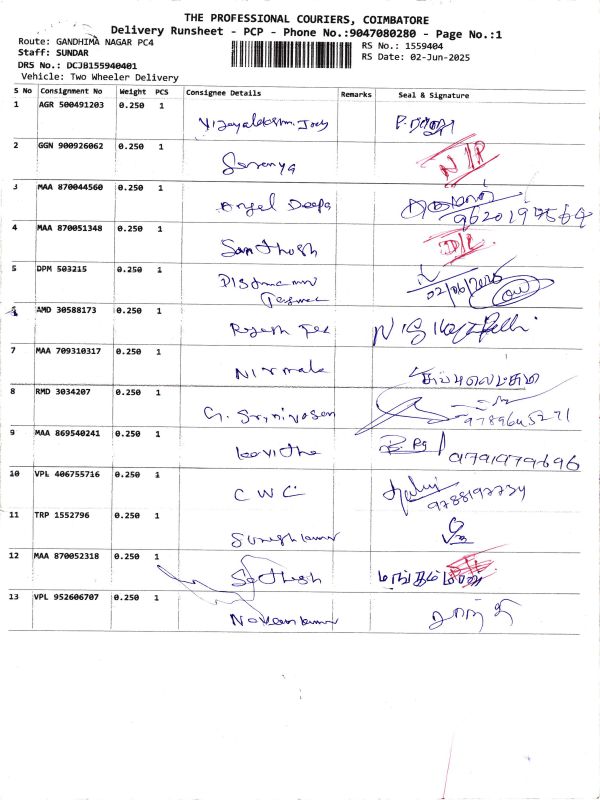 THE PROFESSIONAL COURIERS, COIMBATORE
Delivery Runsheet - PCP - Phone No.:9047080280 - Page No.:1
Route: GANDHIMA NAGAR PC4
RS No.: 1559404
Staff: SUNDAR
RS Date: 02-Jun-2025
DRS No.: DCJB155940401
Vehicle: Two Wheeler Delivery
S No Consignment No Weight PCS Consignee Details Remarks Seal & Signature
1 AGR 500491203 0.250 1
2 GGN 900926062 0.250 1 N/P
Saranya
3 MAA 870044560 0.250 1
Angel Deepa
4 MAA 870051348 0.250 1 D/L
Santhosh
5 DPM 503215 0.250 1
02/06/2025
AMD 30588173 0.250 1
Rajesh
7 MAA 709310317 0.250 1
Nirmala
8 RMD 3034207 0.250 1
G. Srinivasan 9789645271
9 MAA 869540241 0.250 1
Kavitha 9791979696
10 VPL 406755716 0.250 1
CWC 9788197734
11 TRP 1552796 0.250 1
Sureshkumar
12 MAA 870052318 0.250 1
Sathish
13 VPL 952606707 0.250 1
Naveenkumar